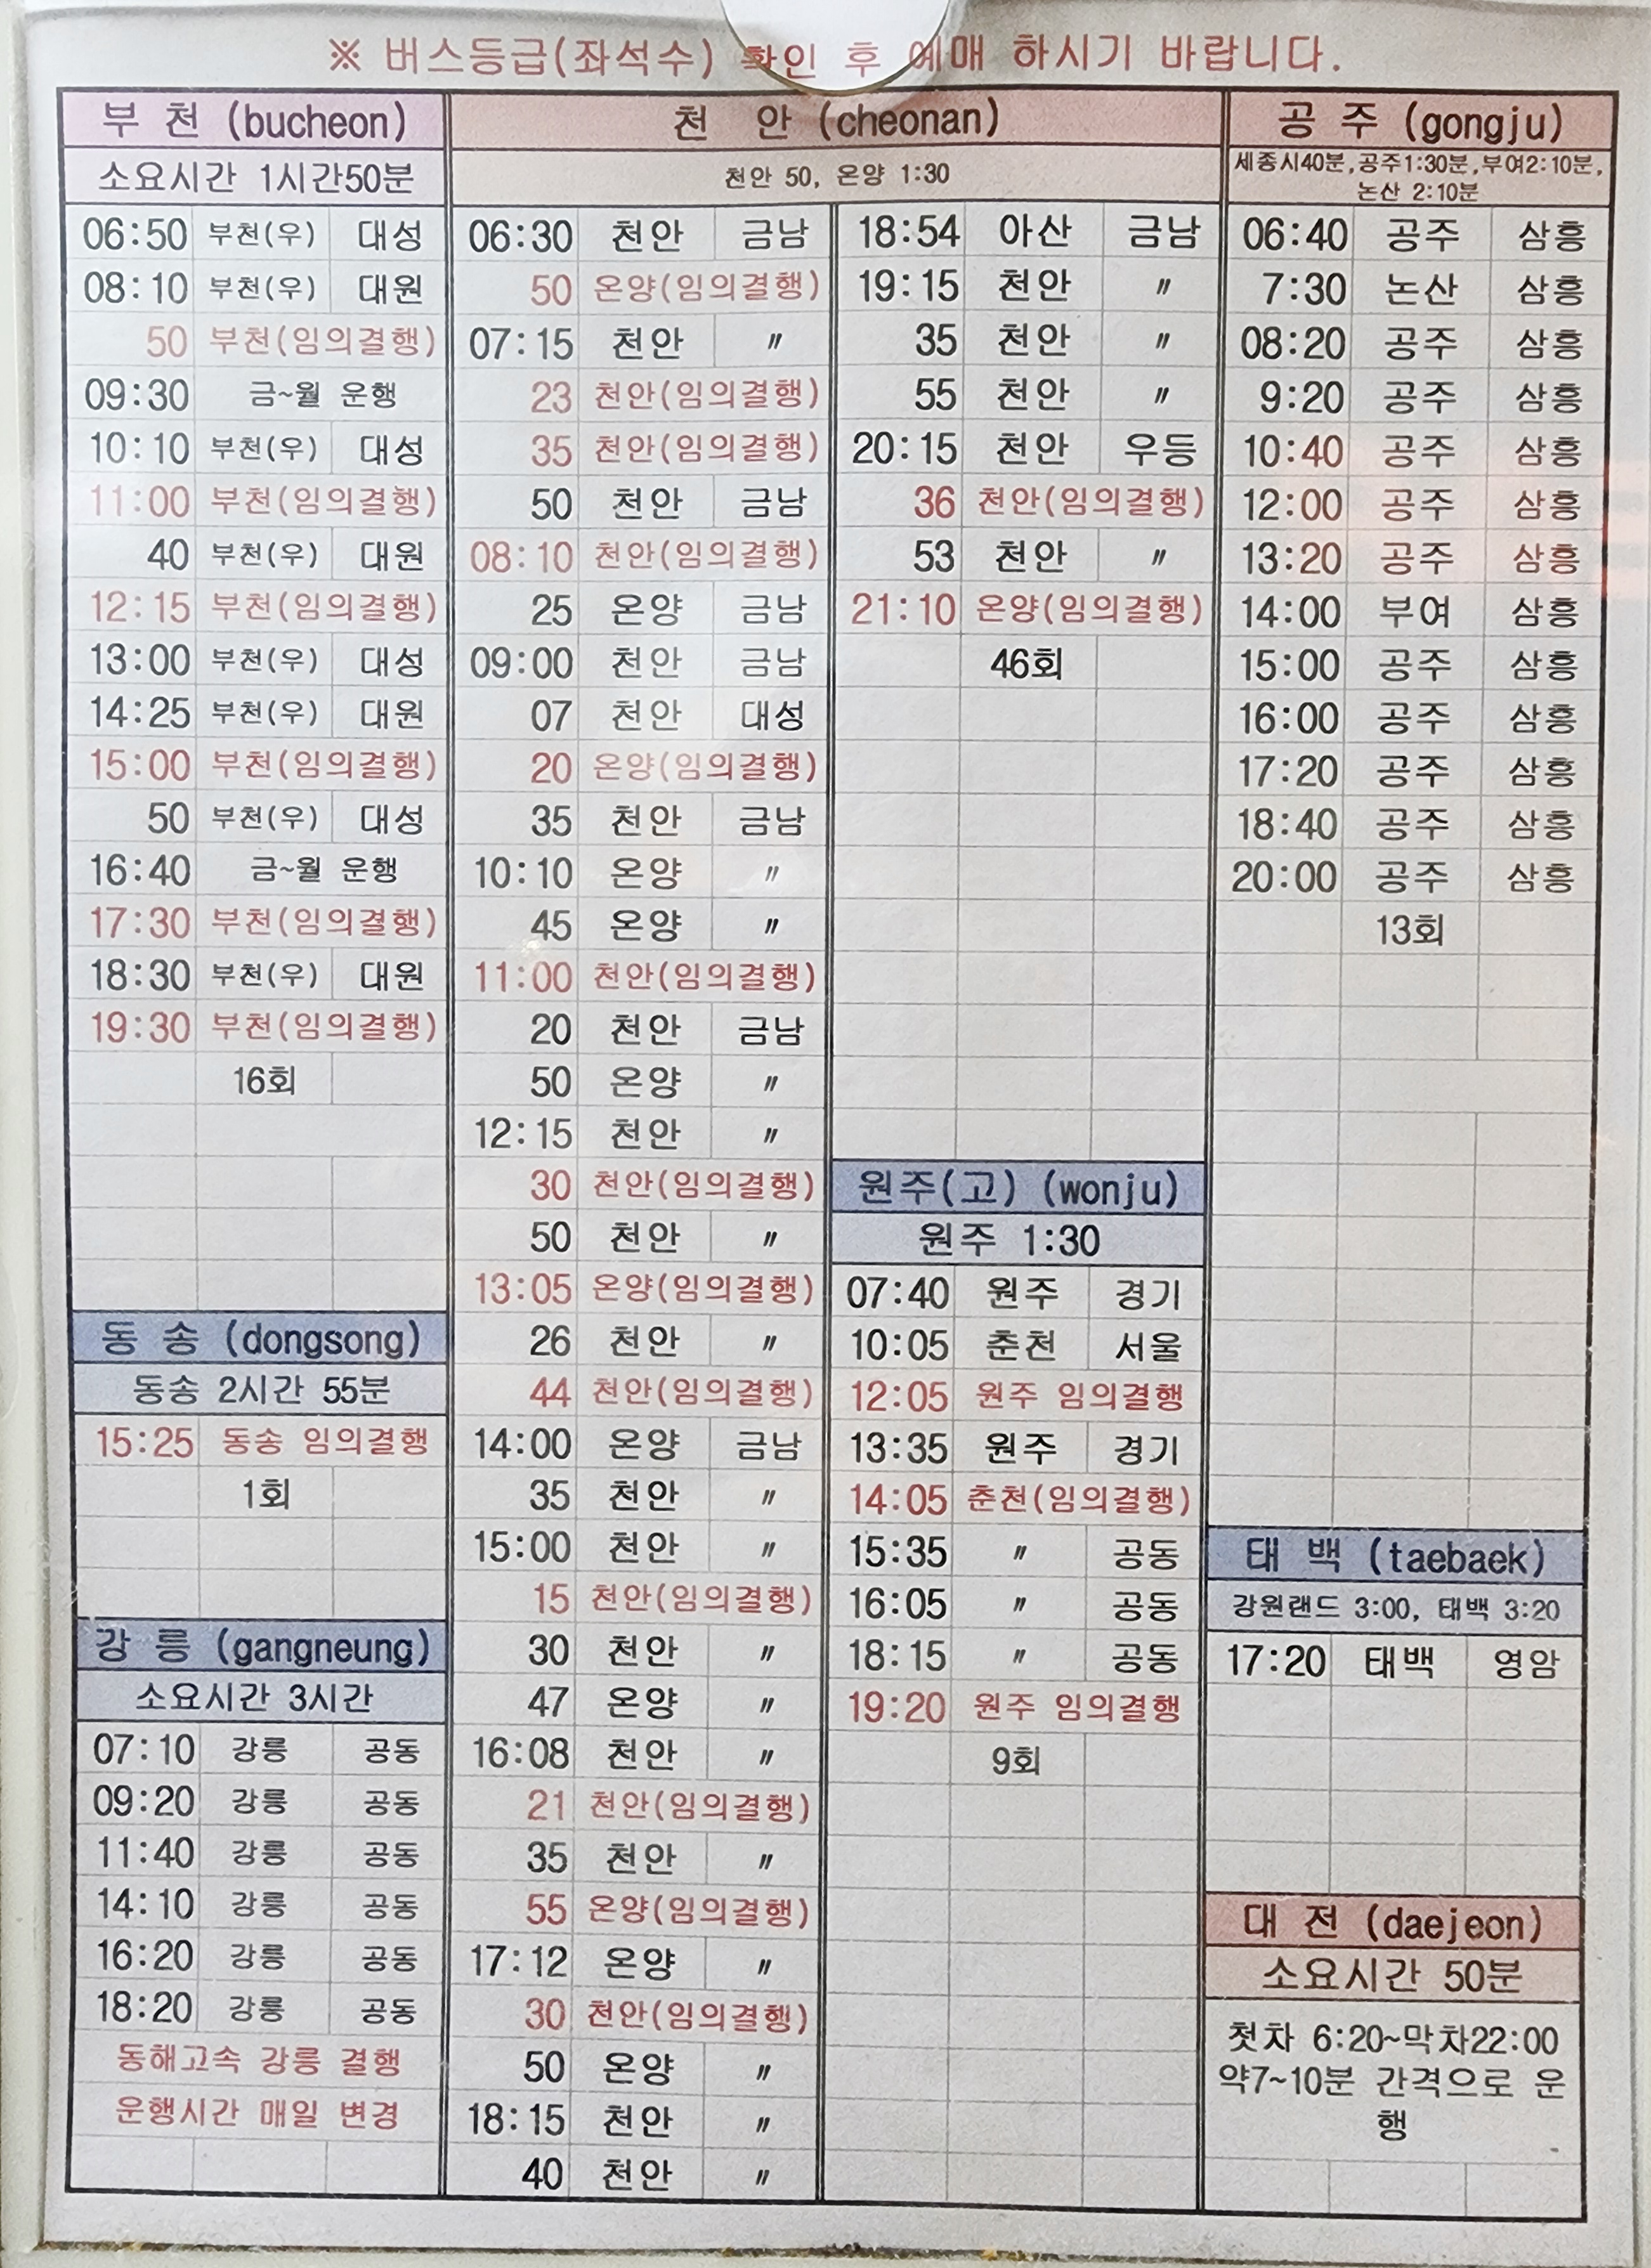 ※ 버스등급(좌석수) 확인 후 예매 하시기 바랍니다.
부 천 (bucheon)
소요시간 1시간50분
06:50 부천(우) 대성
08:10 부천(우) 대원
50 부천(임의결행)
09:30 금~월 운행
10:10 부천(우) 대성
11:00 부천(임의결행)
40 부천(우) 대원
12:15 부천(임의결행)
13:00 부천(우) 대성
14:25 부천(우) 대원
15:00 부천(임의결행)
50 부천(우) 대성
16:40 금~월 운행
17:30 부천(임의결행)
18:30 부천(우) 대원
19:30 부천(임의결행)
16회
동 송 (dongsong)
동송 2시간 55분
15:25 동송 임의결행
1회
강 릉 (gangneung)
소요시간 3시간
07:10 강릉 공동
09:20 강릉 공동
11:40 강릉 공동
14:10 강릉 공동
16:20 강릉 공동
18:20 강릉 공동
동해고속 강릉 결행
운행시간 매일 변경
천 안 (cheonan)
천안 50, 온양 1:30
06:30 천안 금남
50 온양(임의결행)
07:15 천안 〃
23 천안(임의결행)
35 천안(임의결행)
50 천안 금남
08:10 천안(임의결행)
25 온양 금남
09:00 천안 금남
07 천안 대성
20 온양(임의결행)
35 천안 금남
10:10 온양 〃
45 온양 〃
11:00 천안(임의결행)
20 천안 금남
50 온양 〃
12:15 천안 〃
30 천안(임의결행)
50 천안 〃
13:05 온양(임의결행)
26 천안 〃
44 천안(임의결행)
14:00 온양 금남
35 천안 〃
15:00 천안 〃
15 천안(임의결행)
30 천안 〃
47 온양 〃
16:08 천안 〃
21 천안(임의결행)
35 천안 〃
55 온양(임의결행)
17:12 온양 〃
30 천안(임의결행)
50 온양 〃
18:15 천안 〃
40 천안 〃
18:54 아산 금남
19:15 천안 〃
35 천안 〃
55 천안 〃
20:15 천안 우등
36 천안(임의결행)
53 천안 〃
21:10 온양(임의결행)
46회
원주(고) (wonju)
원주 1:30
07:40 원주 경기
10:05 춘천 서울
12:05 원주 임의결행
13:35 원주 경기
14:05 춘천(임의결행)
15:35 〃 공동
16:05 〃 공동
18:15 〃 공동
19:20 원주 임의결행
9회
공 주 (gongju)
세종시40분,공주1:30분,부여2:10분,
논산 2:10분
06:40 공주 삼흥
7:30 논산 삼흥
08:20 공주 삼흥
9:20 공주 삼흥
10:40 공주 삼흥
12:00 공주 삼흥
13:20 공주 삼흥
14:00 부여 삼흥
15:00 공주 삼흥
16:00 공주 삼흥
17:20 공주 삼흥
18:40 공주 삼흥
20:00 공주 삼흥
13회
태 백 (taebaek)
강원랜드 3:00, 태백 3:20
17:20 태백 영암
대 전 (daejeon)
소요시간 50분
첫차 6:20~막차22:00
약7~10분 간격으로 운
행